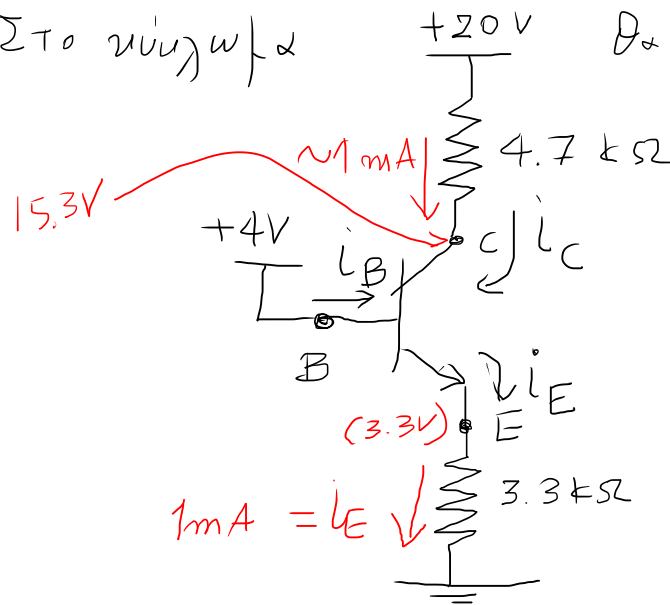 Στο κύκλωμα
+20V
θα
4.7 kΩ
~1 mA
15.3V
+4V
iB
C
iC
B
iE
(3.3V)
E
3.3kΩ
1mA = iE